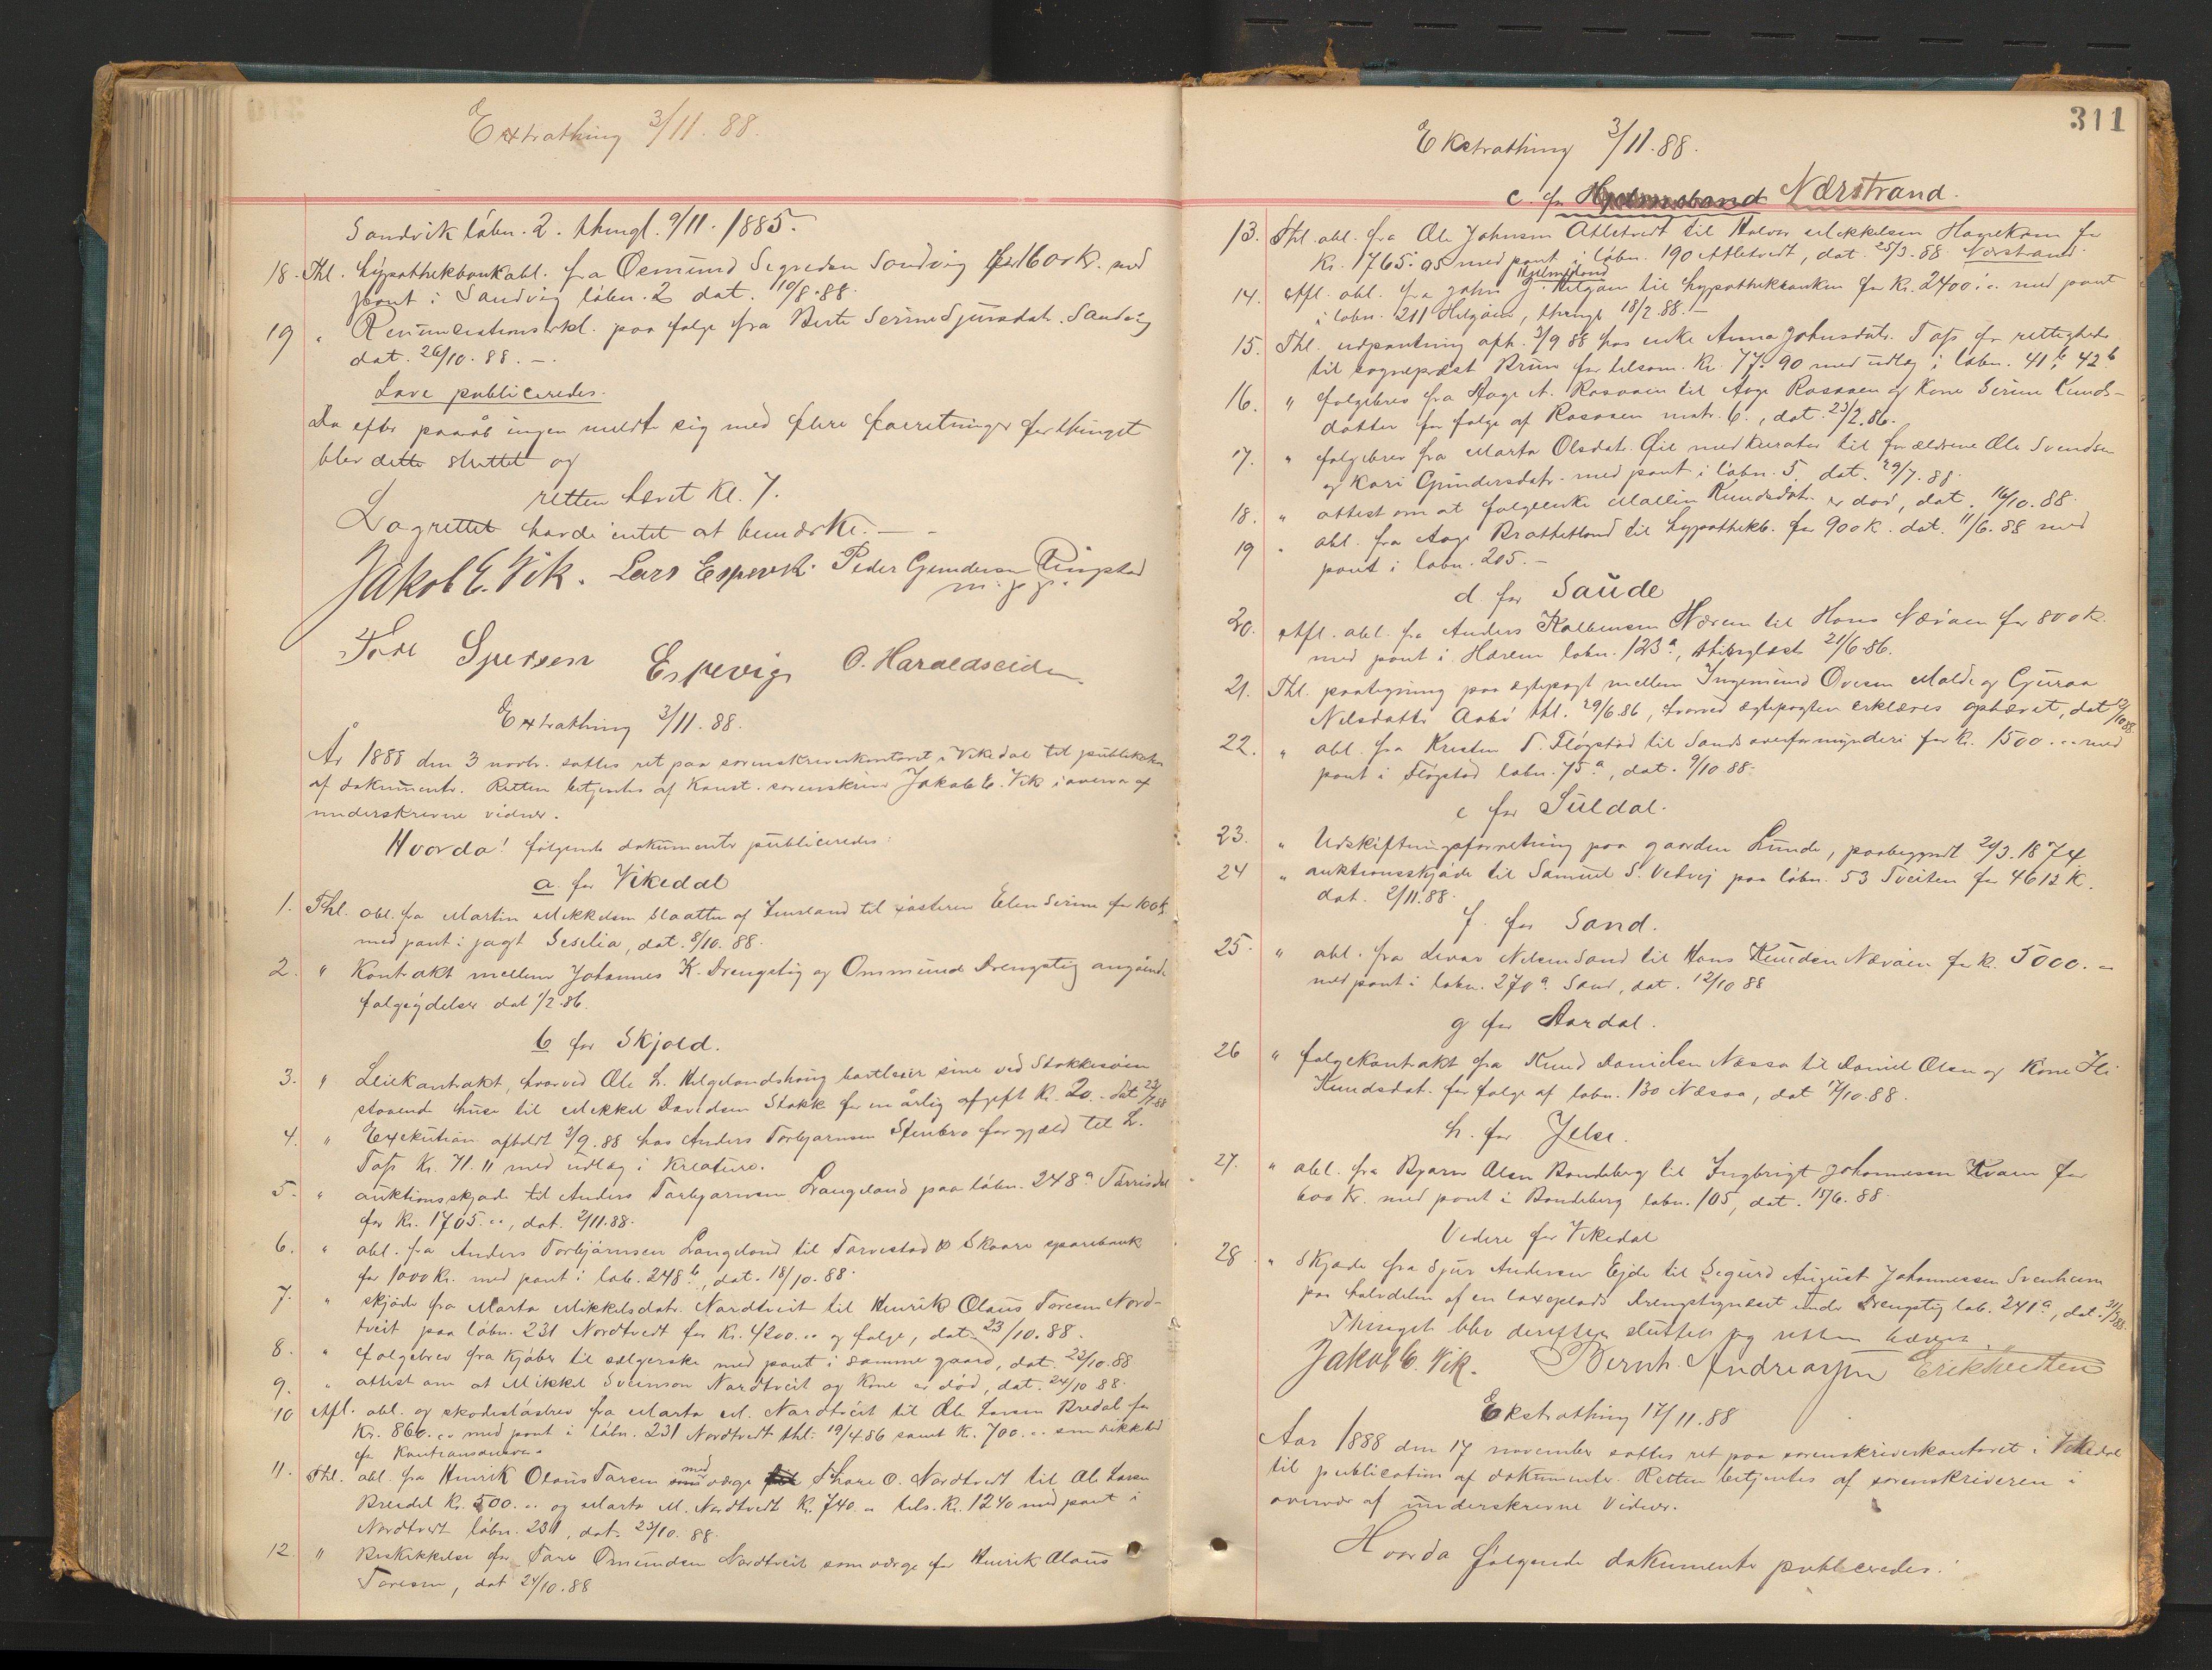 Extrathing 3/11. 88.
Sandvik løbn. 2. thingl. 9/11. 1885.
18. Thl. hypothekbankobl. fra Osmund Sandvig for 1600 kr. med
pant i Sandvig løbn. 2 dat. 10/8.88.
19 " Renunciationserkl. paa folge fra Berte Serine Sjursdatr. Sandvig
dat. 26/10. 88. —
Love publiceredes.
Da efter paaråb ingen meldte sig med flere forretninger for thinget
blev dette sluttet og
retten hævet Kl. 7.
Lagrettet havde intet at bemærke. —
Jakob E. Vik. Lars Espevik. Peder Gundersen Ringstad
m. p. p.
Tore Sjursen Espevig O. Haraldseiden
Extrathing 3/11. 88.
År 1888 den 3 novbr. sattes ret paa sorenskriverkontoret i Vikedal til publikation
af dokumenter. Retten betjentes af Konst. sorenskriver Jakob E. Vik i overvær af
underskrevne vidner.
Hvorda! følgende dokumenter publiceredes:
a for Vikedal
1. Thl. obl. fra Martin Mikkelsen Slaatten af Imsland til søsteren Elen Serine for 100 k.
med pant i jagt Sesilia, dat. 8/10. 88.
2. " Kontrakt mellem Johannes K. Drengstig og Ommund Drengstig angående
folgeydelser dat 1/2.86.
b for Skjold.
3. " Leiekontrakt, hvorved Ole L. Helgelandshoug bortleier sine ved Stokkesøien
staaende huse til Mikkel Davidsen Stokk for en årlig afgift Kr. 20.- dat 23/7 88
4. " Exekution afholdt 3/9. 88 hos Anders Torbjørnsen Stenbro for gjæld til L.
Tofs Kr. 71.11 med udlæg i kreature.
5. " auktionsskjøde til Anders Torbjørnsen Langeland paa løbn. 248a Tørrisdal
for Kr. 1705..., dat. 2/11.88.
6. " obl. fra Anders Torbjørnsen Langeland til Torvestad & Skaare sparebank
for 1000 Kr. med pant i lob. 248b, dat. 18/10. 88.
7. " skjøde fra Marta Mikkelsdatr. Nordtveit til Henrik Olaus Toresen Nord-
tveit paa løbn. 231 Nordtvedt for Kr. 4200... og folge, dat. 23/10. 88.
8. " folgebrev fra kjøber til sælgerske med pant i samme gaard, dat. 23/10. 88
9. " attest om at Mikkel Sveinson Nordtveit og kone er død, dat. 24/10 88.
10 Afl. obl. og skadesløsbrev fra Marta M. Nordtveit til Ole Larsen Bredal for
Kr. 860... med pant i løbn. 231 Nordtvedt thl. 19/4 86 samt Kr. 700... som sikkerhed
for
11. Thl. obl. fra Henrik Olaus Toresen med værge Thore O. Nordtvedt til Ole Larsen
Breidal Kr. 500... og Marta M. Nordtvedt Kr. 740... tils. Kr. 1240 med pant i
Nordtvedt løbn. 231, dat. 23/10. 88.
12. " Beskikkelse for Tore Omundsen Nordtveit som værge for Henrik Olaus
Toresen, dat 24/10.88
311
Ekstrathing 3/11.88.
c. for Nærstrand.
13. Thl. obl. fra Ole Johnsen Atletvedt til Halvor Mikkelsen for
Kr. 1765.05 med pant i løbn. 190 Atletvedt, dat. 25/3.88. Nærstrand.
Hjelmeland
14. Afl. obl. fra John J. Helgøen til hypothekbanken for Kr. 2400... med pant
i løbn. 211 Helgøen, thingl 18/2.88. —
15. Thl. udpantning aph. 3/9 88 hos enke Anna Johnsdatr. Tofs for rettigheder
til sogneprest Brun for tilsam. Kr. 77.90 med udlæg i løbn. 41b, 42b
16. " folgebrev fra Aage A. Rosaaen til Aage Rosaaen og kone Serine Knuds-
datter for folge af Rosaaen matr. 6., dat. 23/2.86.
17. " folgebrev fra Marta Olsdatr. med kurator til forældrene Ole Svendsen
og Kari Gundersdatr. med pant i løbn. 5. dat. 29/7. 88.
18. " attest om at folgeenke Mallin Knudsdatr. er død, dat. 16/10. 88.
19 " obl. fra Aage Brathetland til hypothekb. for 900 k. dat. 11/6. 88 med
pant i løbn. 205. —
d. for Saude
20. Afl. obl. fra Anders Kolbensen Hæren til Hans Nævøen for 800 k.
med pant i Hæren løbn. 123a, thinglæst 21/6.86.
21. Thl. paategning paa ægtepagt mellem Ingemund Ovesen Molde og Guroa
Nilsdatter Aabø thl. 29/6 86, hvorved ægtepagten erklæres ophævet, dat 12/10 88.
22. " obl. fra Kristen T. Fløgstad til Sands overformynderi for kr. 1500... med
pant i Fløgstad løbn. 75a, dat. 9/10 88.
e for Suldal.
23. " Udskiftningsforretning paa gaarden Lunde, paabegyndt 24/3. 1874
24 " auktionsskjøde til Samuel S. Vetvej paa løbn. 53 Tveiten for 4612 K.
dat. 2/11.88.
f. for Sand.
25. " obl. fra Nilsen Sand til Hans Knudsen Nævøen for k. 5000. —
med pant i løbn. 270a Sand, dat. 12/10 88
g for Aardal.
26 " folgekontrakt fra Knud Danielsen Næssa til Daniel Olsen og kone
Knudsdat. for folge af løbn. 130 Næssa, dat 17/10.88.
h. for Jelse.
27. " obl. fra Bjarne Olsen Bondeberg til Ingbrigt Johannesen Kvam for
600 Kr. med pant i Bondeberg løbn. 105, dat. 15/6. 88.
Videre for Vikedal
28 " Skjøde fra Sjur Andersen Ejde til Sigurd August Johannessen Svenheim
paa halvdelen af en laxeplads Drengstigneset under Drengstig løb. 241a, dat. 31/3 88.
Thinget blev derefter sluttet og retten hævet.
Jakob E. Vik. Bernh. Andreassen Erik Tveiten
Ekstrathing 17/11.88
Aar 1888 den 17 november sattes ret paa sorenskriverkontoret i Vikedal
til publication af dokumenter. Retten betjentes af sorenskriveren i
overvær af underskrevne vidner.
Hvorda følgende dokumenter publiceredes: